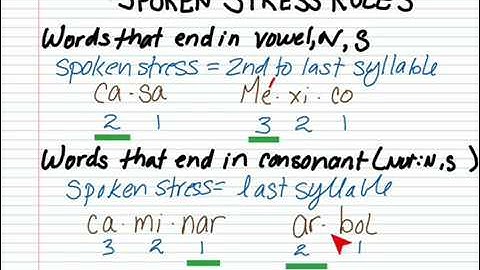 SPOKEN STRESS RULES
Words that end in vowel, N, S
spoken stress = 2nd to last syllable
ca·sa Mé·xi·co
2 1 3 2 1
Words that end in consonant (NOT: N, S)
spoken stress = last syllable
ca·mi·nar ar·bol
3 2 1 2 1